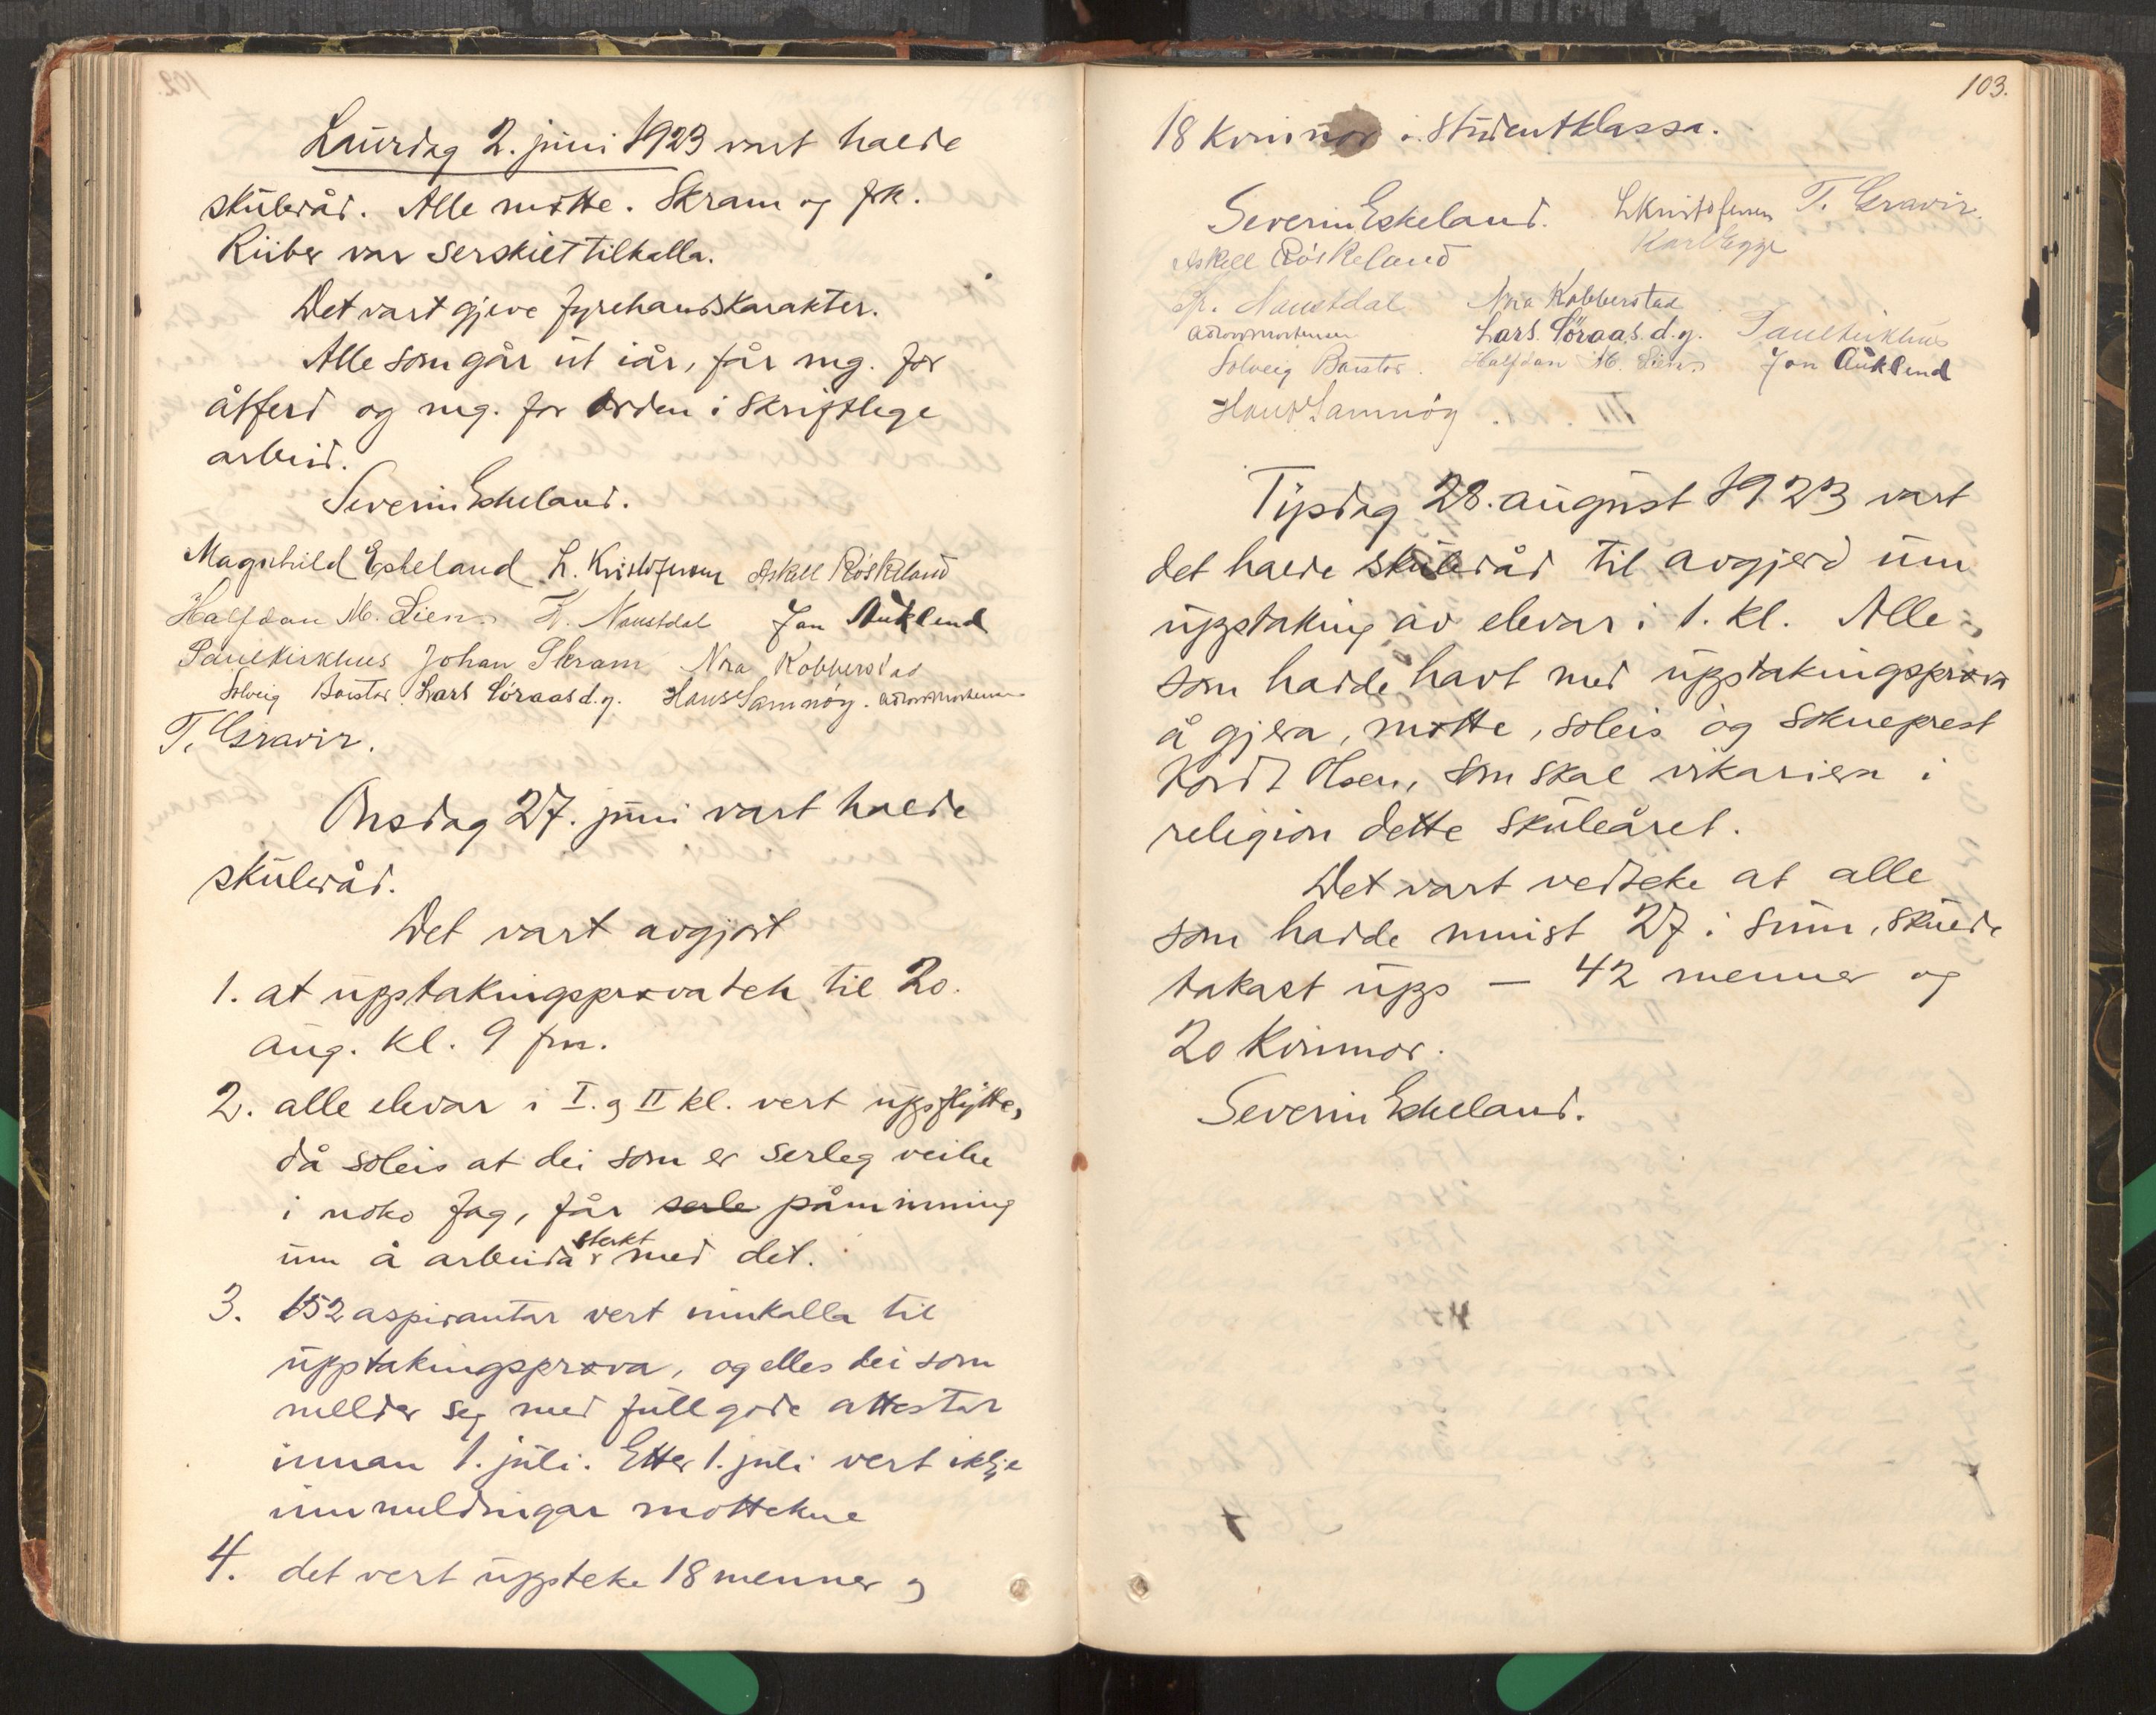 Laurdag 2. juni 1923 vart halde
skuleråd. Alle møtte. Skram og frk.
Riiber var serskilt tilkalla.
Det vart gjeve fyrehandskarakter.
Alle som går ut iår, får mg. for
åtferd og mg. for orden i skriftlege
arbeid.
Severin Eskeland.
Magnhild Eskeland L. Kristofersen Askell Røskeland
Halfdan M. Lien. K. Naustdal Jon Aukland
Paul Kirkhus Johan Skram Nora Kobberstad
Solveig Baustad. Lars Søraas d.y. Hans Samnøy.
T. Gravir.
Onsdag 27. juni vart halde
skuleråd.
Det vart avgjort
1. at upptakingsprøva tek til 20.
aug. kl. 9 fm.
2. alle elevar i I. og II kl. vert uppflytte,
då soleis at dei som er serleg veike
i noko fag, får serle påminning
um å arbeida sterkt med det.
3. 152 aspirantar vert innkalla til
upptakingsprøva, og elles dei som
melder seg med fullgode attestar
innan 1. juli. Etter 1. juli vert ikkje
innmeldingar mottekne
4. det vert uppteke 18 menner og
103.
18 kvinnor i studentklassa.
Severin Eskeland. L Kristofersen T. Gravir.
Askell Røskeland Karl Egge
K. Naustdal Nora Kobberstad
Lars Søraas. d.y. Paul Kirkhus
Solveig Baustad. Halfdan M. Lien. Jon Aukland
Hans Samnøy.
Tysdag 28. august 1923 vart
det halde skuleråd til avgjerd um
upptaking av elevar i 1. kl. Alle
som hadde havt med upptakingsprøva
å gjera, møtte, soleis og sokneprest
Kordt Olsen, som skal vikariera i
religion dette skuleåret.
Det vart vedteke at alle
som hadde minst 27 i sum, skulde
takast upp — 42 menner og
20 kvinnor.
Severin Eskeland.